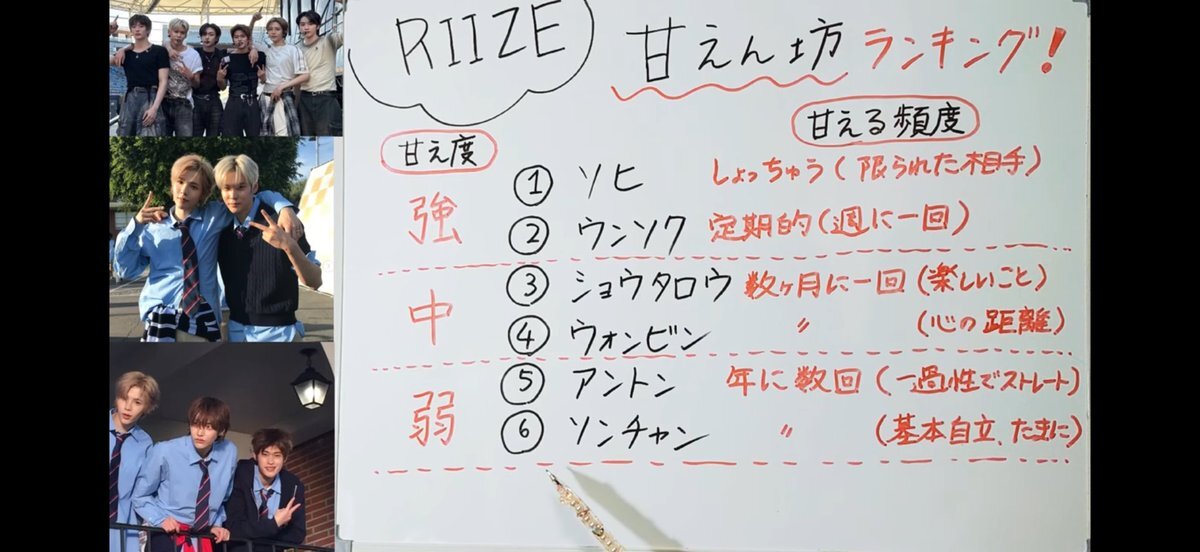 RIIZE 甘えん坊ランキング!
甘え度 甘える頻度
強 ① ソヒ しょっちゅう(限られた相手)
② ウンソク 定期的(週に一回)
中 ③ ショウタロウ 数ヶ月に一回(楽しいこと)
④ ウォンビン 〃 (心の距離)
弱 ⑤ アントン 年に数回(一過性でストレート)
⑥ ソンチャン 〃 (基本自立、たまに)